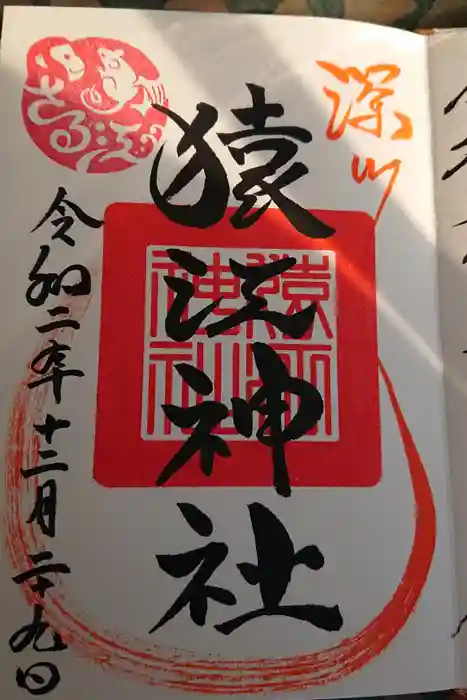 深川
猿江神社
猿江神社
令和二年十二月二十九日
さる江